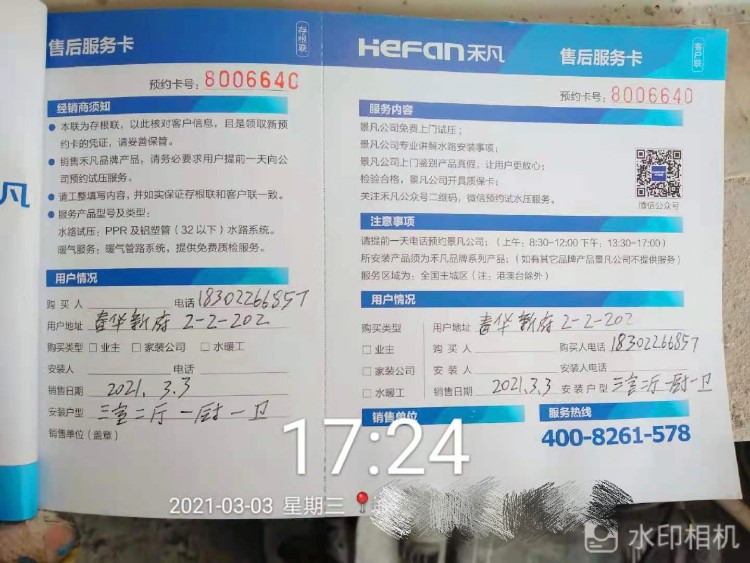 售后服务卡
存根联
预约卡号：8006640
经销商须知
● 本联为存根联，以此核对客户信息，且是领取新预
约卡的凭证，请妥善保管。
● 销售禾凡品牌产品，请务必要求用户提前一天向公
司预约试压服务。
● 请工整填写内容，并如实保证存根联和客户联一致。
● 服务产品型号及类型：
水路试压：PPR及铝塑管（32以下）水路系统。
暖气服务：暖气管路系统，提供免费质检服务。
用户情况
购买人 电话 18302266857
用户地址 春华新府 2-2-202
购买类型 □ 业主 □ 家装公司 □ 水暖工
安装人 电话
销售日期 2021.3.3
安装户型 三室二厅一厨一卫
销售单位（盖章）
HeFan禾凡
售后服务卡
客户联
预约卡号：8006640
服务内容
景凡公司免费上门试压；
景凡公司专业讲解水路安装事项；
景凡公司上门鉴别产品真假，让用户更放心；
检验合格，景凡公司开具质保卡；
关注禾凡公众号二维码，微信预约试水压服务。
微信公众号
注意事项
请提前一天电话预约景凡公司；（上午：8:30-12:00 下午：13:30-17:00）
所安装产品须为禾凡品牌系列产品；（如有其它品牌产品景凡公司不提供服务）
服务区域为：全国主城区（注：港澳台除外）
用户情况
购买类型 用户地址 春华新府 2-2-202
□ 业主 购买人 购买人电话 18302266857
□ 家装公司 安装人 安装人电话
□ 水暖工 销售日期 2021.3.3 安装户型 三室二厅一厨一卫
销售单位
服务热线
400-8261-578
凡
17:24
2021-03-03 星期三
水印相机